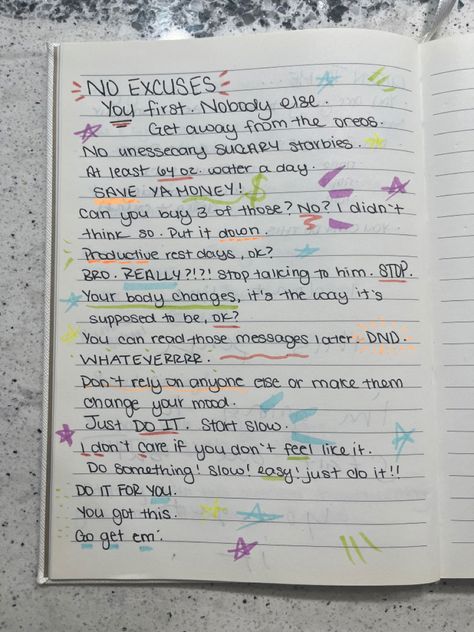 NO EXCUSES
You first. Nobody else.
Get away from the oreos.
No unessecary SUGARY starbies.
At least 64 oz. water a day.
SAVE YA MONEY! $
Can you buy 3 of those? No? I didn't
think so. Put it down.
Productive rest days, ok?
BRO. REALLY?!?! Stop talking to him. STOP.
Your body changes, it's the way it's
supposed to be, ok?
You can read those messages later. DND.
WHATEVERRRR.
Don't rely on anyone else or make them
change your mood.
Just DO IT. Start slow.
I don't care if you don't feel like it.
Do something! slow! easy! just do it!!
DO IT FOR YOU.
You got this.
Go get em.